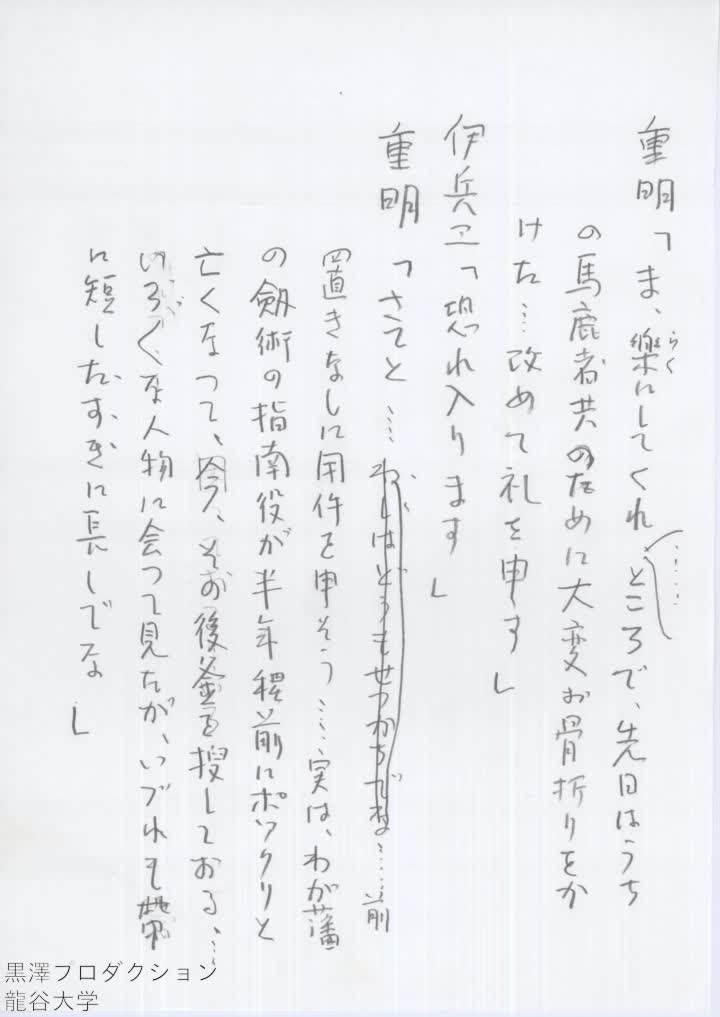 重明「ま、樂にしてくれ……ところで、先日はうち
らく
の馬鹿者共のために大変お骨折りをか
けた…改めて礼を申す」
伊兵卫「恐れ入ります」
重明「さてと……わしはどうもせつかちでね……前
置きなしに用件を申そう……実は、わが藩
の剱術の指南役が半年程前にポックリと
亡くなつて、今、その後釜を捜しておる……
いろ〳〵な人物に会つて見たが、いづれも帯
に短したすきに長しでな」
黒澤プロダクション
龍谷大学